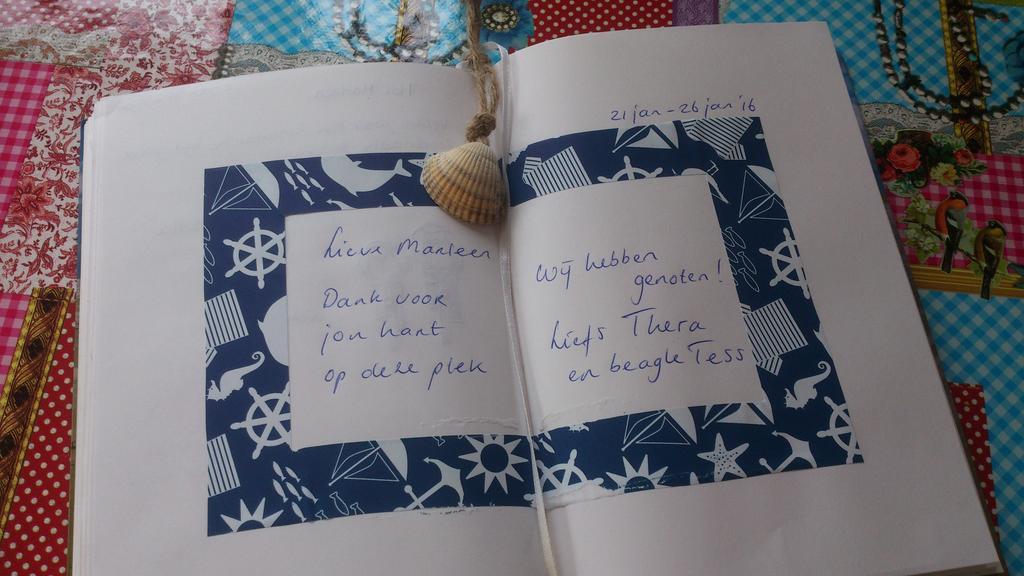 Lieve Marleen
Dank voor
jou hart
op deze plek
21 jan - 26 jan '16
Wij hebben
genoten!
Liefs Thera
en beagle Tess